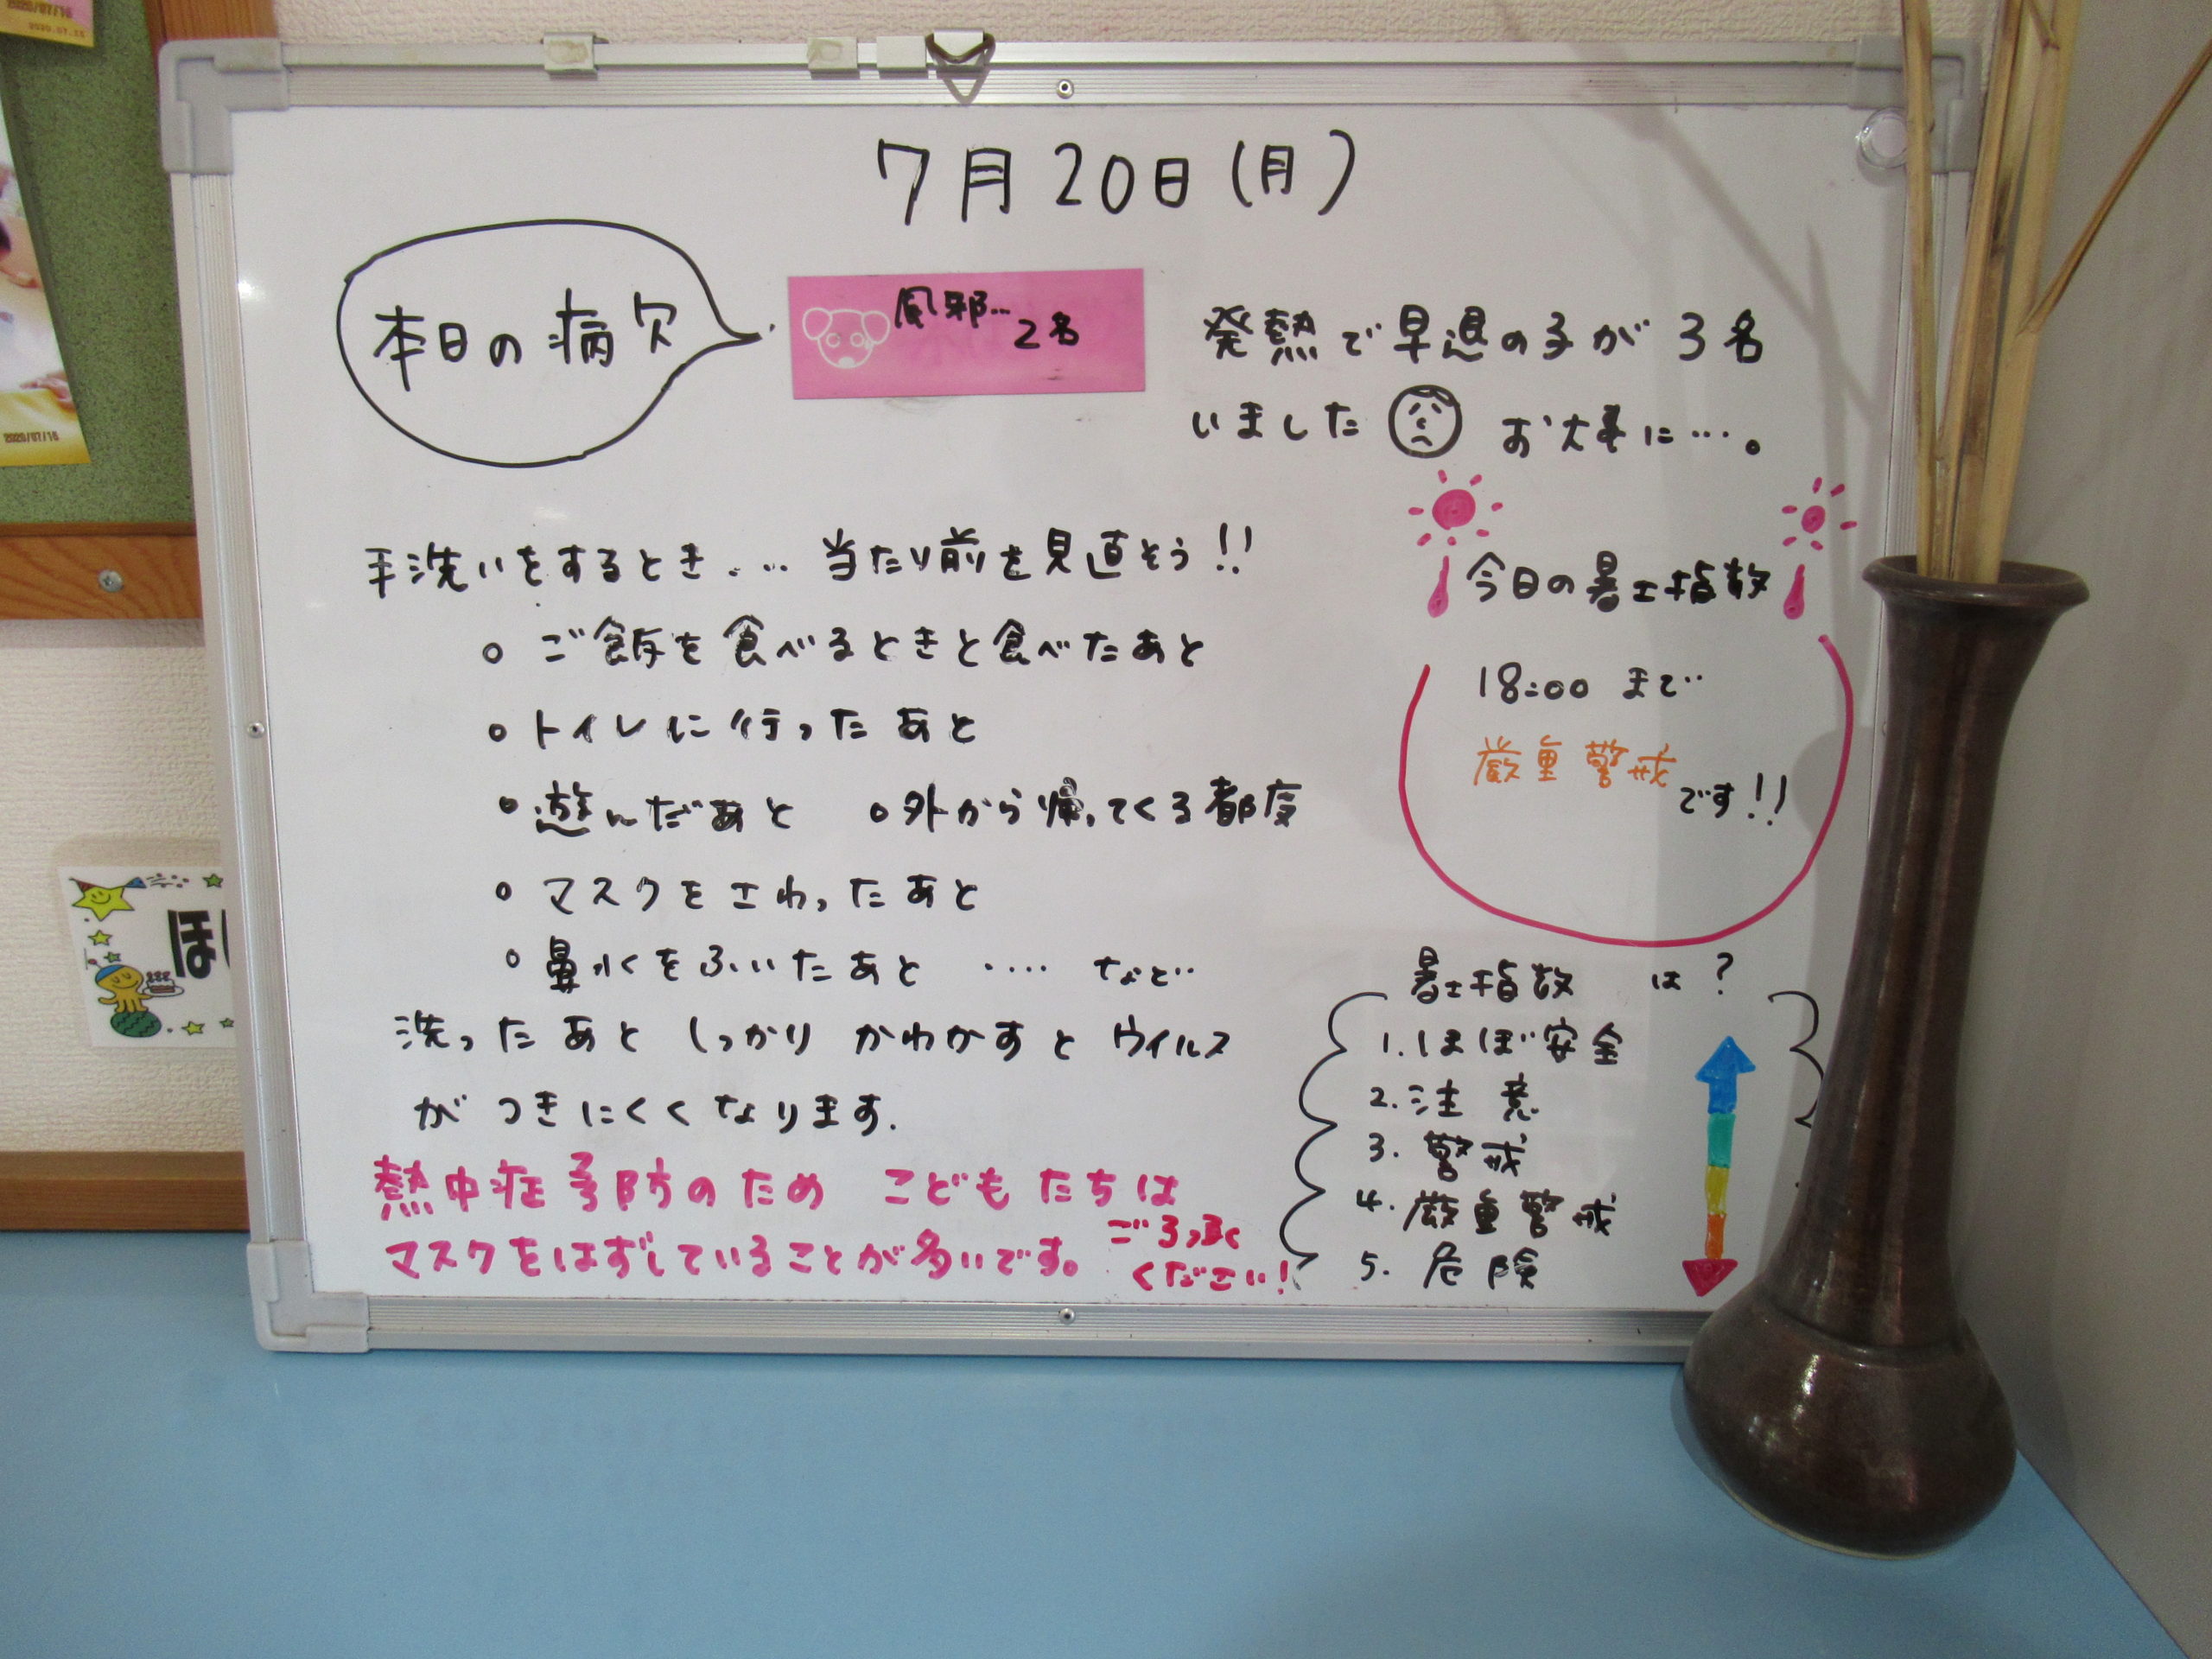 7月20日(月)
本日の病欠
風邪…2名
発熱で早退の子が3名
いました お大事に…。
手洗いをするとき.… 当たり前を見直そう!!
○ ご飯を食べるときと食べたあと
○ トイレに行ったあと
○ 遊んだあと ○外から帰ってくる都度
○ マスクをさわったあと
○ 鼻水をふいたあと ‥‥ など
洗ったあと しっかり かわかすと ウイルス
がつきにくくなります.
熱中症予防のため こどもたちは
マスクをはずしていることが多いです。
ください!
今日の暑さ指数
18:00 まで
厳重警戒
です!!
暑さ指数 は?
1.ほぼ安全
2.注意
3.警戒
4.厳重警戒
5.危険
ほ